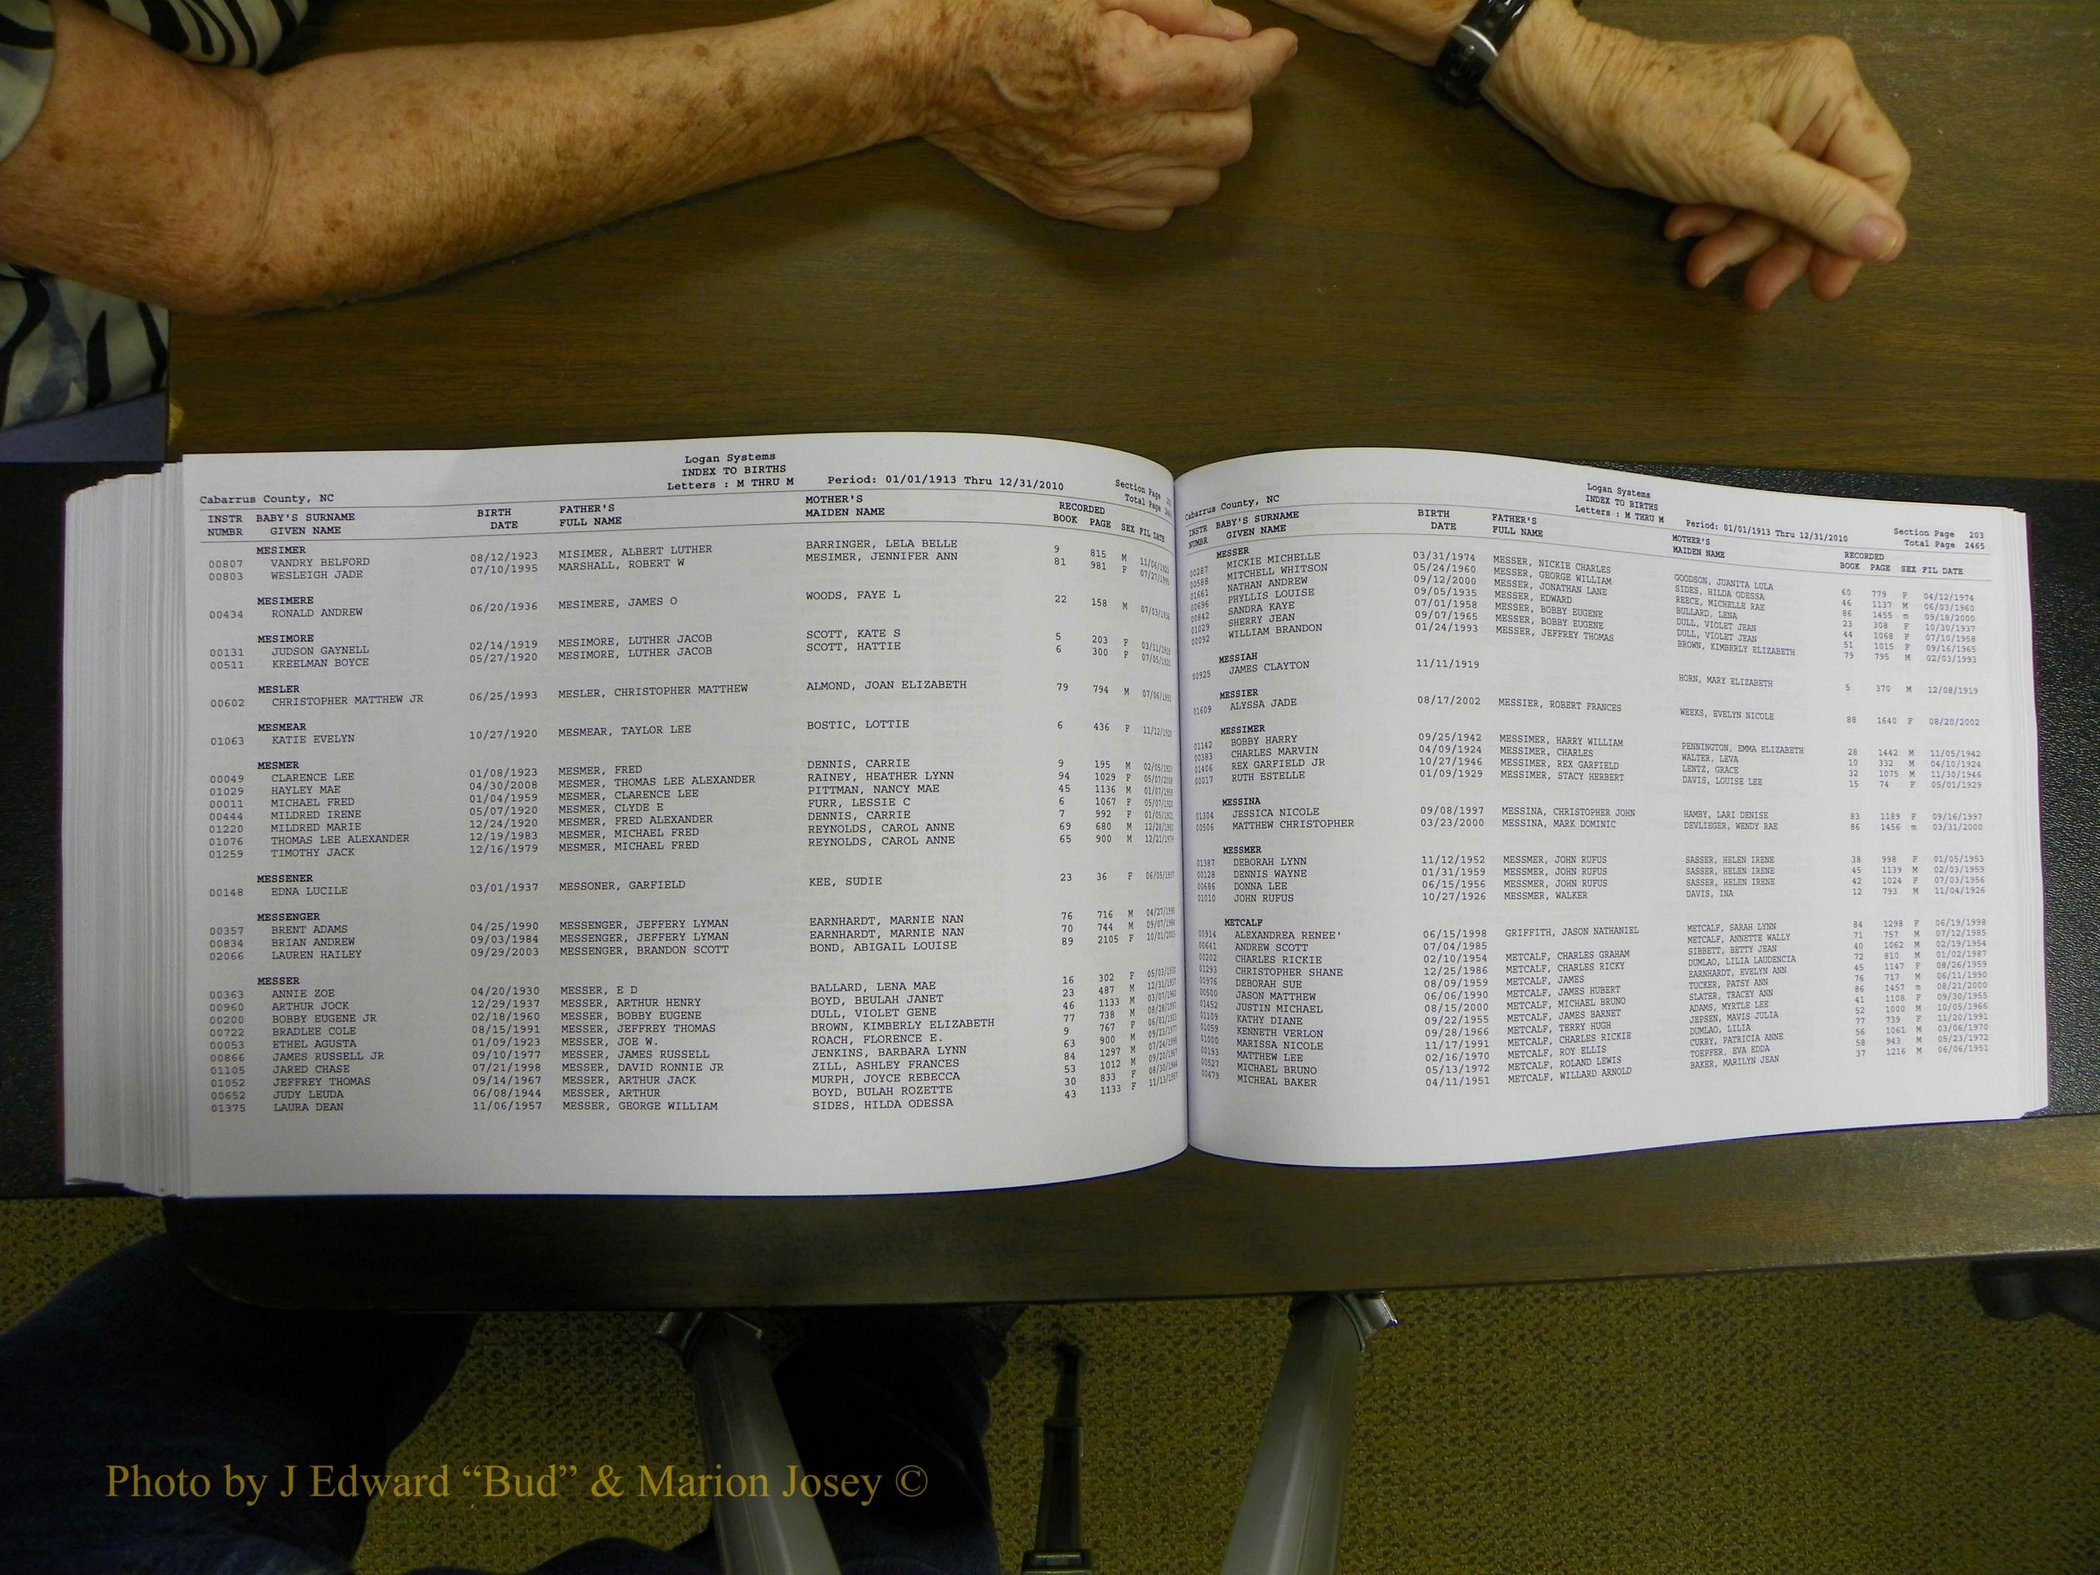 Logan Systems
INDEX TO BIRTHS
Letters : M THRU M Period: 01/01/1913 Thru 12/31/2010
Cabarrus County, NC Section Page
Total Page
INSTR BABY'S SURNAME BIRTH FATHER'S MOTHER'S RECORDED
NUMBR GIVEN NAME DATE FULL NAME MAIDEN NAME BOOK PAGE SEX FIL DATE
MESIMER
00807 VANDRY BELFORD 08/12/1923 MISIMER, ALBERT LUTHER BARRINGER, LELA BELLE 9 815 M
00803 WESLEIGH JADE 07/10/1995 MARSHALL, ROBERT W MESIMER, JENNIFER ANN 81 981 F
MESIMERE
00434 RONALD ANDREW 06/20/1936 MESIMERE, JAMES O WOODS, FAYE L 22 158 M 07/03/1936
MESIMORE
00131 JUDSON GAYNELL 02/14/1919 MESIMORE, LUTHER JACOB SCOTT, KATE S 5 203 F 03/11/1919
00511 KREELMAN BOYCE 05/27/1920 MESIMORE, LUTHER JACOB SCOTT, HATTIE 6 300 F 07/05/1920
MESLER
00602 CHRISTOPHER MATTHEW JR 06/25/1993 MESLER, CHRISTOPHER MATTHEW ALMOND, JOAN ELIZABETH 79 794 M 07/06/1993
MESMEAR
01063 KATIE EVELYN 10/27/1920 MESMEAR, TAYLOR LEE BOSTIC, LOTTIE 6 436 F 11/12/1920
MESMER
00049 CLARENCE LEE 01/08/1923 MESMER, FRED DENNIS, CARRIE 9 195 M 02/05/1923
01029 HAYLEY MAE 04/30/2008 MESMER, THOMAS LEE ALEXANDER RAINEY, HEATHER LYNN 94 1029 F 05/07/2008
00011 MICHAEL FRED 01/04/1959 MESMER, CLARENCE LEE PITTMAN, NANCY MAE 45 1136 M 01/07/1959
00444 MILDRED IRENE 05/07/1920 MESMER, CLYDE E FURR, LESSIE C 6 1067 F
01220 MILDRED MARIE 12/24/1920 MESMER, FRED ALEXANDER DENNIS, CARRIE 7 992 F 01/05/1921
01076 THOMAS LEE ALEXANDER 12/19/1983 MESMER, MICHAEL FRED REYNOLDS, CAROL ANNE 69 680 M 12/28/1983
01259 TIMOTHY JACK 12/16/1979 MESMER, MICHAEL FRED REYNOLDS, CAROL ANNE 65 900 M 12/21/1979
MESSENER
00148 EDNA LUCILE 03/01/1937 MESSONER, GARFIELD KEE, SUDIE 23 36 F 06/05/1937
MESSENGER
00357 BRENT ADAMS 04/25/1990 MESSENGER, JEFFERY LYMAN EARNHARDT, MARNIE NAN 76 716 M 04/27/1990
00834 BRIAN ANDREW 09/03/1984 MESSENGER, JEFFERY LYMAN EARNHARDT, MARNIE NAN 70 744 M 09/07/1984
02066 LAUREN HAILEY 09/29/2003 MESSENGER, BRANDON SCOTT BOND, ABIGAIL LOUISE 89 2105 F 10/01/2003
MESSER
00363 ANNIE ZOE 04/20/1930 MESSER, E D BALLARD, LENA MAE 16 302 F 05/03/1930
00960 ARTHUR JOCK 12/29/1937 MESSER, ARTHUR HENRY BOYD, BEULAH JANET 23 487 M 12/31/1937
00200 BOBBY EUGENE JR 02/18/1960 MESSER, BOBBY EUGENE DULL, VIOLET GENE 46 1133 M 03/07/1960
00722 BRADLEE COLE 08/15/1991 MESSER, JEFFREY THOMAS BROWN, KIMBERLY ELIZABETH 77 738 M
00053 ETHEL AGUSTA 01/09/1923 MESSER, JOE W. ROACH, FLORENCE E. 9 767 F
00866 JAMES RUSSELL JR 09/10/1977 MESSER, JAMES RUSSELL JENKINS, BARBARA LYNN 63 900 M
01105 JARED CHASE 07/21/1998 MESSER, DAVID RONNIE JR ZILL, ASHLEY FRANCES 84 1297 M
01052 JEFFREY THOMAS 09/14/1967 MESSER, ARTHUR JACK MURPH, JOYCE REBECCA 53 1012 M
00652 JUDY LEUDA 06/08/1944 MESSER, ARTHUR BOYD, BULAH ROZETTE 30 833 F
01375 LAURA DEAN 11/06/1957 MESSER, GEORGE WILLIAM SIDES, HILDA ODESSA 43 1133 F 11/13/1957
Logan Systems
INDEX TO BIRTHS
Letters : M THRU M Period: 01/01/1913 Thru 12/31/2010
Cabarrus County, NC Section Page 203
Total Page 2465
INSTR BABY'S SURNAME BIRTH FATHER'S MOTHER'S RECORDED
NUMBR GIVEN NAME DATE FULL NAME MAIDEN NAME BOOK PAGE SEX FIL DATE
MESSER
00287 MICKIE MICHELLE 03/31/1974 MESSER, NICKIE CHARLES GOODSON, JUANITA LULA 60 779 F 04/12/1974
00588 MITCHELL WHITSON 05/24/1960 MESSER, GEORGE WILLIAM SIDES, HILDA ODESSA 46 1137 M 06/03/1960
01661 NATHAN ANDREW 09/12/2000 MESSER, JONATHAN LANE REECE, MICHELLE RAE 86 1455 m 09/18/2000
00696 PHYLLIS LOUISE 09/05/1935 MESSER, EDWARD BULLARD, LENA 23 308 F 10/30/1937
00842 SANDRA KAYE 07/01/1958 MESSER, BOBBY EUGENE DULL, VIOLET JEAN 44 1068 F 07/10/1958
01029 SHERRY JEAN 09/07/1965 MESSER, BOBBY EUGENE DULL, VIOLET JEAN 51 1015 F 09/16/1965
00092 WILLIAM BRANDON 01/24/1993 MESSER, JEFFREY THOMAS BROWN, KIMBERLY ELIZABETH 79 795 M 02/03/1993
MESSIAH
00925 JAMES CLAYTON 11/11/1919 HORN, MARY ELIZABETH 5 370 M 12/08/1919
MESSIER
01609 ALYSSA JADE 08/17/2002 MESSIER, ROBERT FRANCES WEEKS, EVELYN NICOLE 88 1640 F 08/20/2002
MESSIMER
01142 BOBBY HARRY 09/25/1942 MESSIMER, HARRY WILLIAM PENNINGTON, EMMA ELIZABETH 28 1442 M 11/05/1942
00383 CHARLES MARVIN 04/09/1924 MESSIMER, CHARLES WALTER, LEVA 10 332 M 04/10/1924
01406 REX GARFIELD JR 10/27/1946 MESSIMER, REX GARFIELD LENTZ, GRACE 32 1075 M 11/30/1946
00017 RUTH ESTELLE 01/09/1929 MESSIMER, STACY HERBERT DAVIS, LOUISE LEE 15 74 F 05/01/1929
MESSINA
01304 JESSICA NICOLE 09/08/1997 MESSINA, CHRISTOPHER JOHN HAMBY, LARI DENISE 83 1189 F 09/16/1997
00506 MATTHEW CHRISTOPHER 03/23/2000 MESSINA, MARK DOMINIC DEVLIEGER, WENDY RAE 86 1456 m 03/31/2000
MESSMER
01387 DEBORAH LYNN 11/12/1952 MESSMER, JOHN RUFUS SASSER, HELEN IRENE 38 998 F 01/05/1953
00128 DENNIS WAYNE 01/31/1959 MESSMER, JOHN RUFUS SASSER, HELEN IRENE 45 1139 M 02/03/1959
00686 DONNA LEE 06/15/1956 MESSMER, JOHN RUFUS SASSER, HELEN IRENE 42 1024 F 07/03/1956
01010 JOHN RUFUS 10/27/1926 MESSMER, WALKER DAVIS, INA 12 793 M 11/04/1926
METCALF
00914 ALEXANDREA RENEE' 06/15/1998 GRIFFITH, JASON NATHANIEL METCALF, SARAH LYNN 84 1298 F 06/19/1998
00641 ANDREW SCOTT 07/04/1985 METCALF, ANNETTE WALLY 71 757 M 07/12/1985
00202 CHARLES RICKIE 02/10/1954 METCALF, CHARLES GRAHAM SIBBETT, BETTY JEAN 40 1062 M 02/19/1954
01293 CHRISTOPHER SHANE 12/25/1986 METCALF, CHARLES RICKY DUMLAO, LILIA LAUDENCIA 72 810 M 01/02/1987
00976 DEBORAH SUE 08/09/1959 METCALF, JAMES EARNHARDT, EVELYN ANN 45 1147 F 08/26/1959
00500 JASON MATTHEW 06/06/1990 METCALF, JAMES HUBERT TUCKER, PATSY ANN 76 717 M 06/11/1990
01452 JUSTIN MICHAEL 08/15/2000 METCALF, MICHAEL BRUNO SLATER, TRACEY ANN 86 1457 m 08/21/2000
01109 KATHY DIANE 09/22/1955 METCALF, JAMES BARNET ADAMS, MYRTLE LEE 41 1108 F 09/30/1955
01059 KENNETH VERLON 09/28/1966 METCALF, TERRY HUGH JEPSEN, MAVIS JULIA 52 1000 M 10/05/1966
01000 MARISSA NICOLE 11/17/1991 METCALF, CHARLES RICKIE DUMLAO, LILIA 77 739 F 11/20/1991
00193 MATTHEW LEE 02/16/1970 METCALF, ROY ELLIS CURRY, PATRICIA ANNE 56 1061 M 03/06/1970
00527 MICHAEL BRUNO 05/13/1972 METCALF, ROLAND LEWIS TOEPFER, EVA EDDA 58 943 M 05/23/1972
00479 MICHEAL BAKER 04/11/1951 METCALF, WILLARD ARNOLD BAKER, MARILYN JEAN 37 1216 M 06/06/1951
Photo by J Edward “Bud” & Marion Josey ©